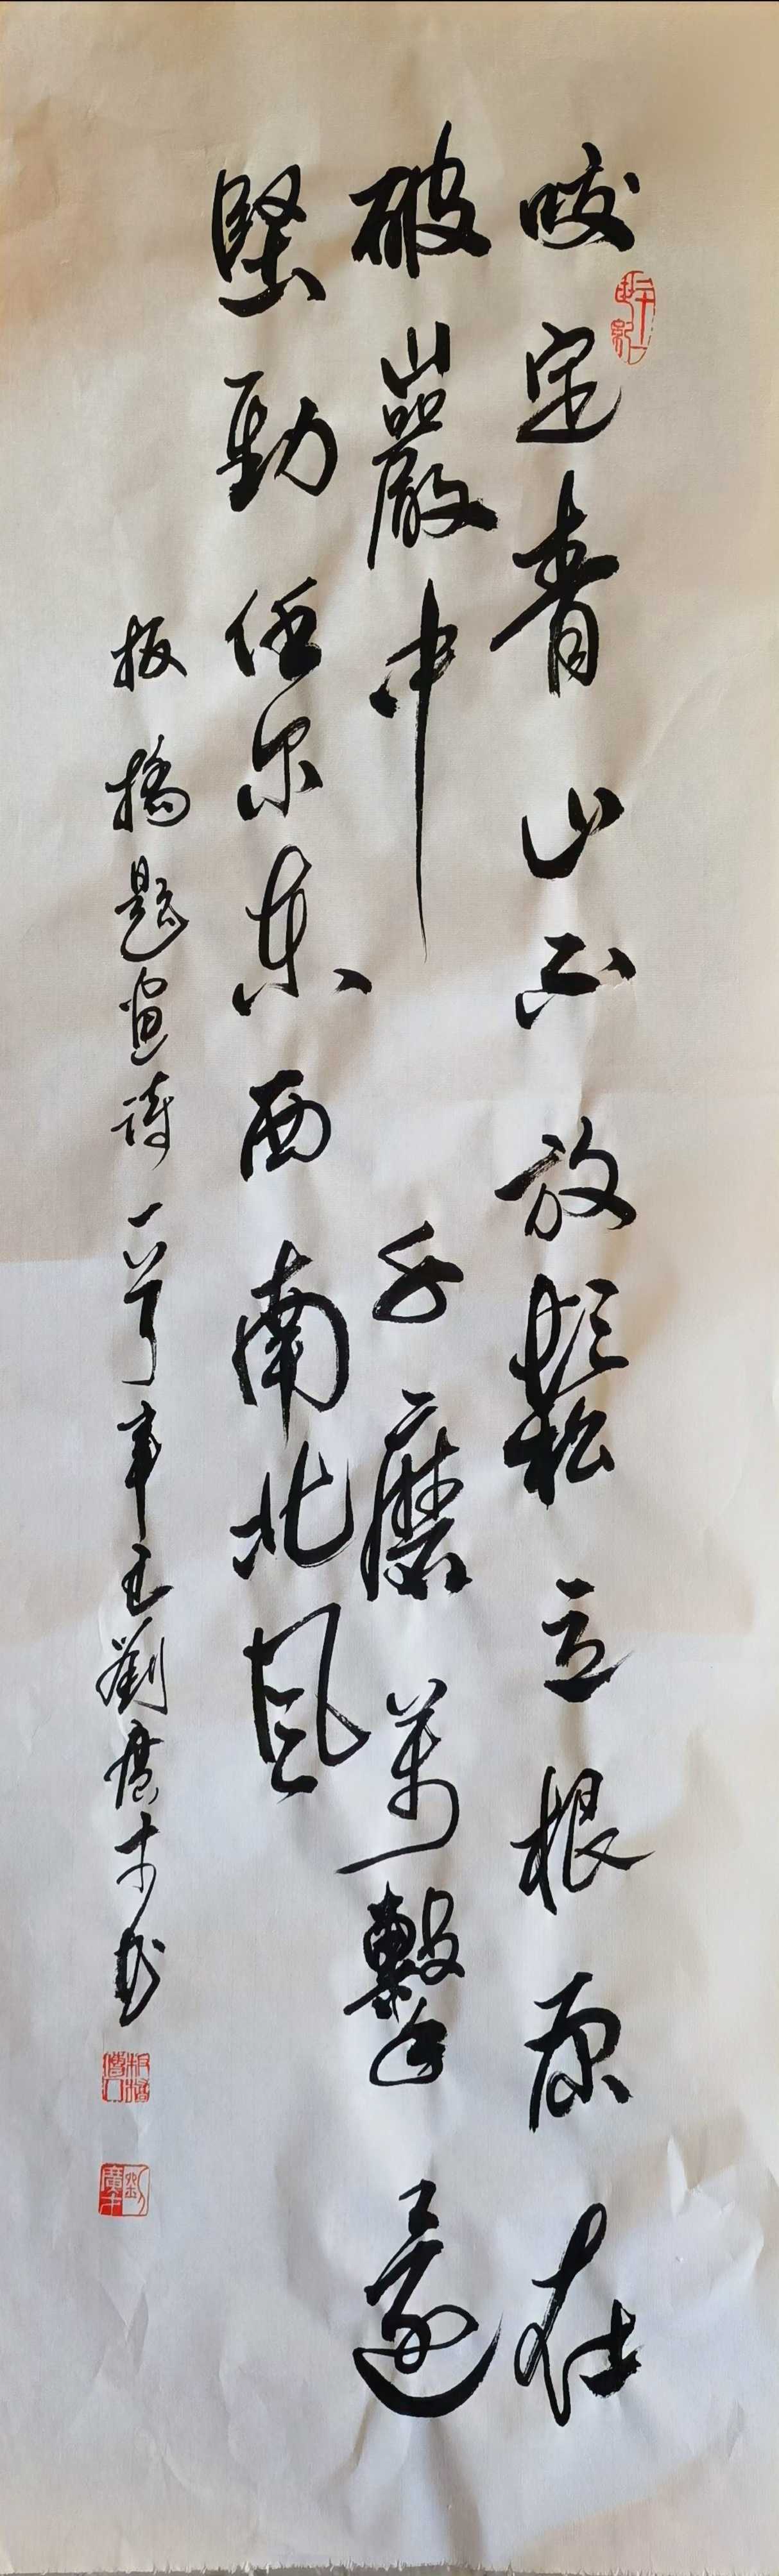 咬定青山不放鬆立根原在
破巖中千磨萬擊還
堅勁任尔東西南北風
板橋題畫詩一首辛丑劉廣才书
劉廣才